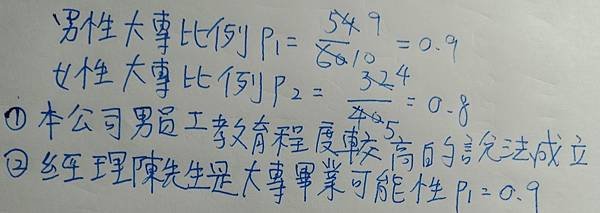 男性大專比例 P₁ = 54/60 9/10 = 0.9
女性大專比例 P₂ = 32/40 4/5 = 0.8
① 本公司男員工教育程度較高的說法成立
② 經理陳先生是大專畢業可能性 P₁ = 0.9